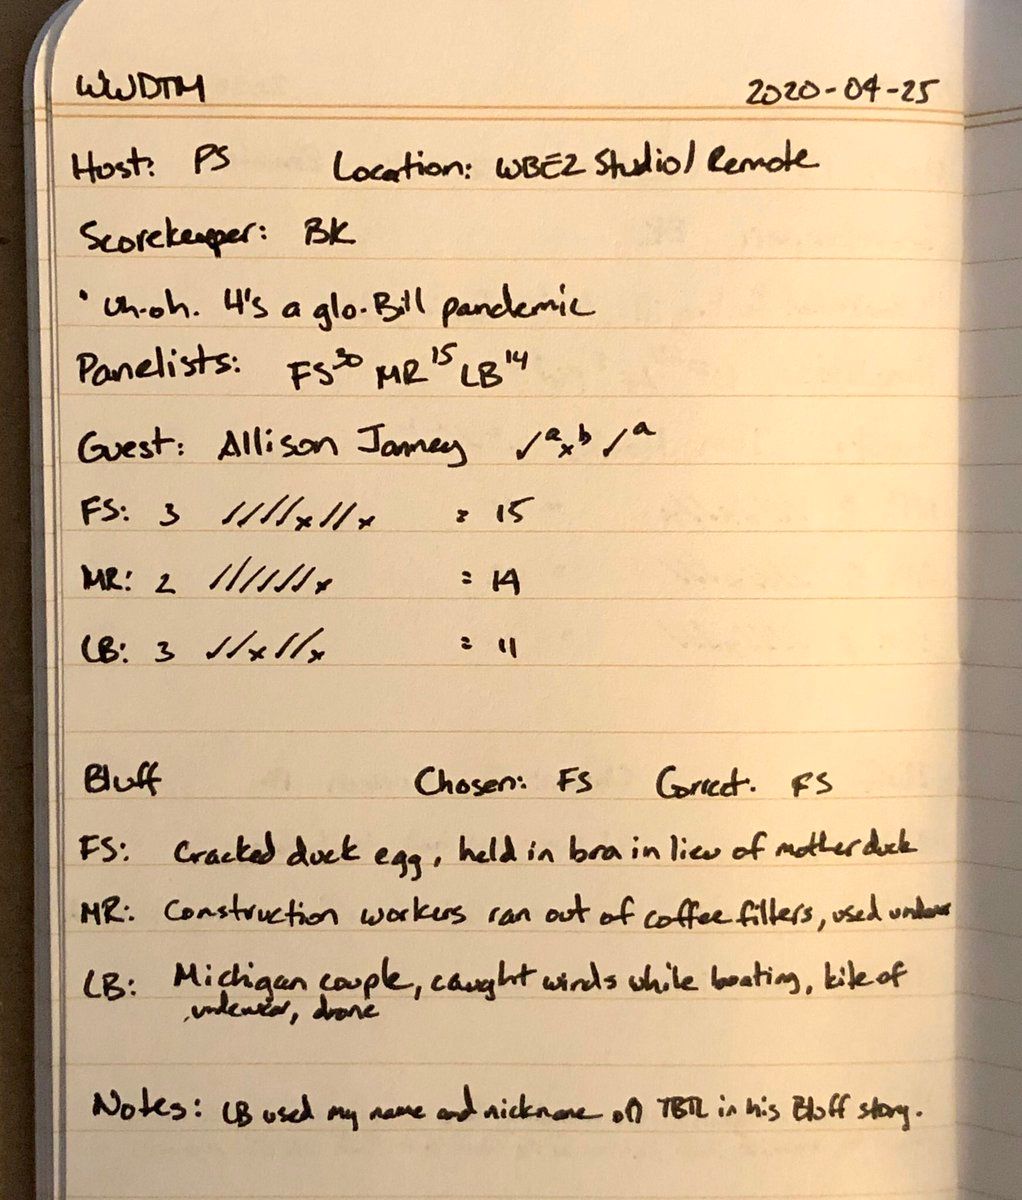 WWDTM 2020-04-25
Host: PS Location: WBEZ Studio/Remote
Scorekeeper: BK
• Uh-oh. 4's a glo-Bill pandemic
Panelists: FS30 MR15 LB14
Guest: Allison Janney ✓a xb ✓a
FS: 3 ////x//x = 15
MR: 2 //////x = 14
LB: 3 //x//x = 11
Bluff Chosen: FS Correct: FS
FS: Cracked duck egg, held in bra in lieu of mother duck
MR: Construction workers ran out of coffee filters, used underwear
LB: Michigan couple, caught winds while boating, kite of
underwear, drone
Notes: LB used my name and nickname on TBTL in his Bluff story.